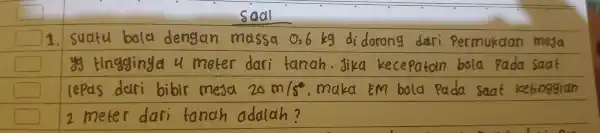 Soal
1. Suatu bola dengan massa 0,6 kg di dorong dari Permukaan meja
yg tingginya 4 meter dari tanah. Jika kecepatan bola Pada saat
lepas dari bibir meja 20 m/s, maka EM bola Pada saat ketinggian
2 meter dari tanah adalah?